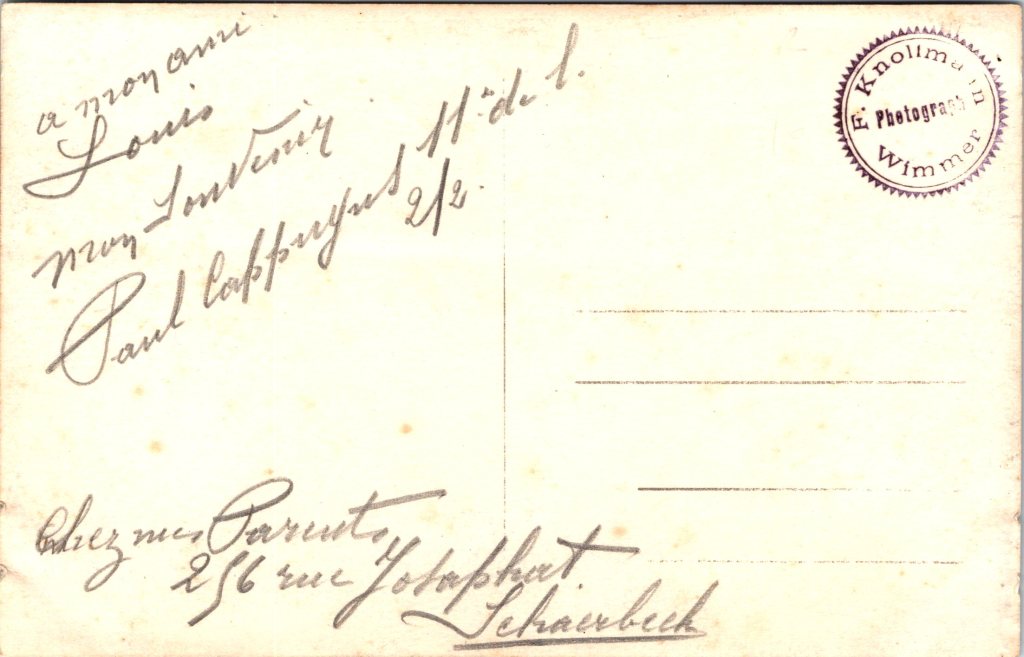 a mon ami
Louis
mon Souvenir
Paul Cappuyns 11e de l.
2/2.
Chez mes Parents
256 rue Josaphat
Schaerbeek
F. Knollmann
Photograph
Wimmer